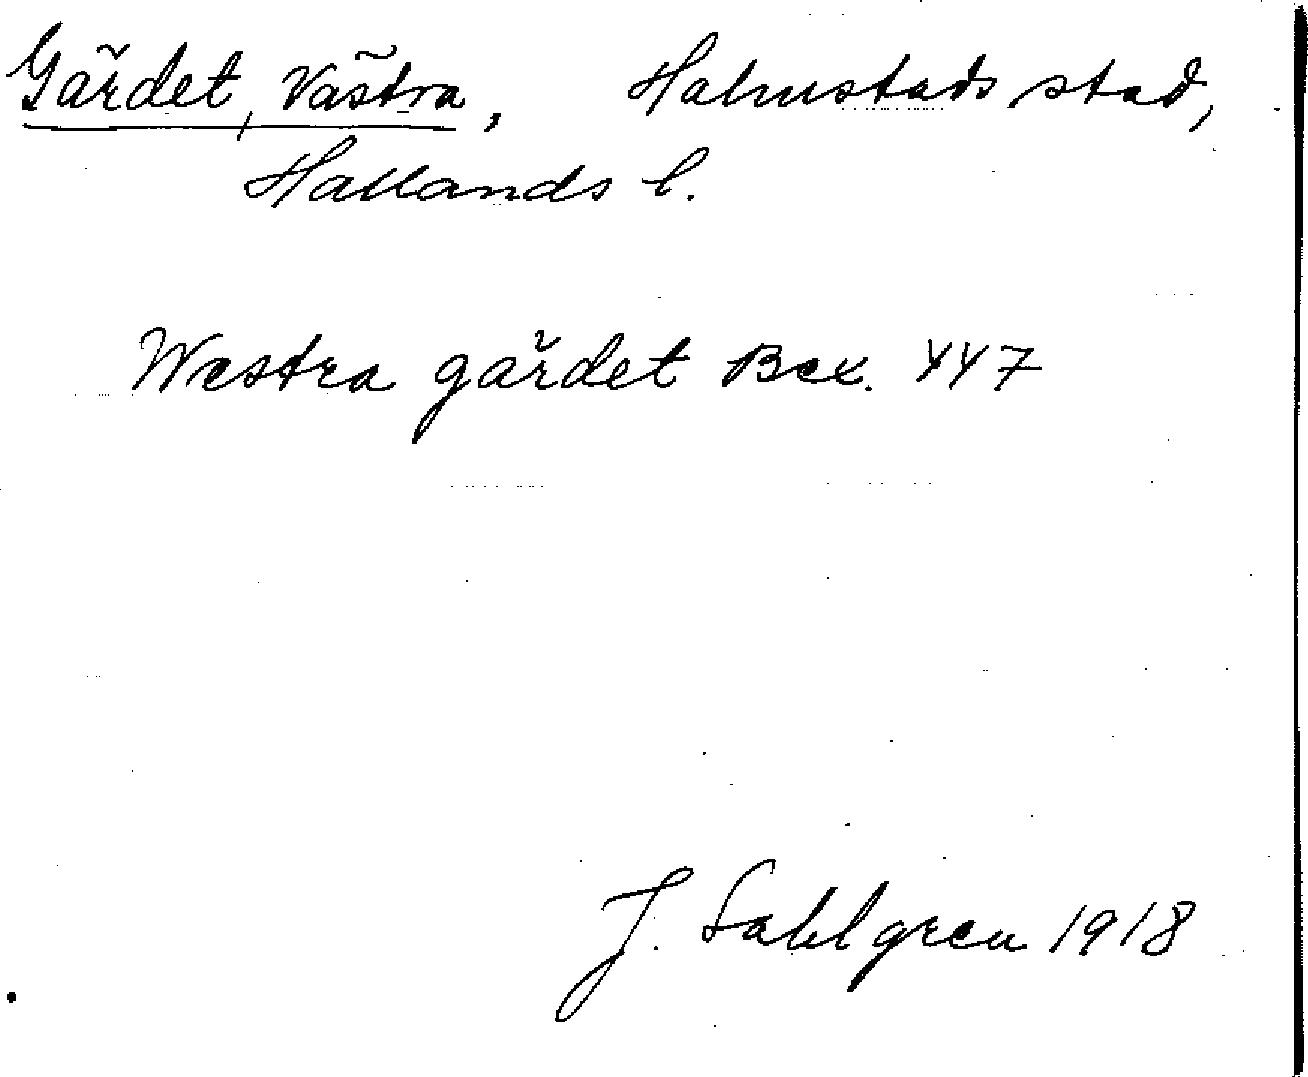 Gärdet, Västra, Halmstads stad,
Hallands l.
Westra gärdet Bex. 447
J. Sahlgren 1918